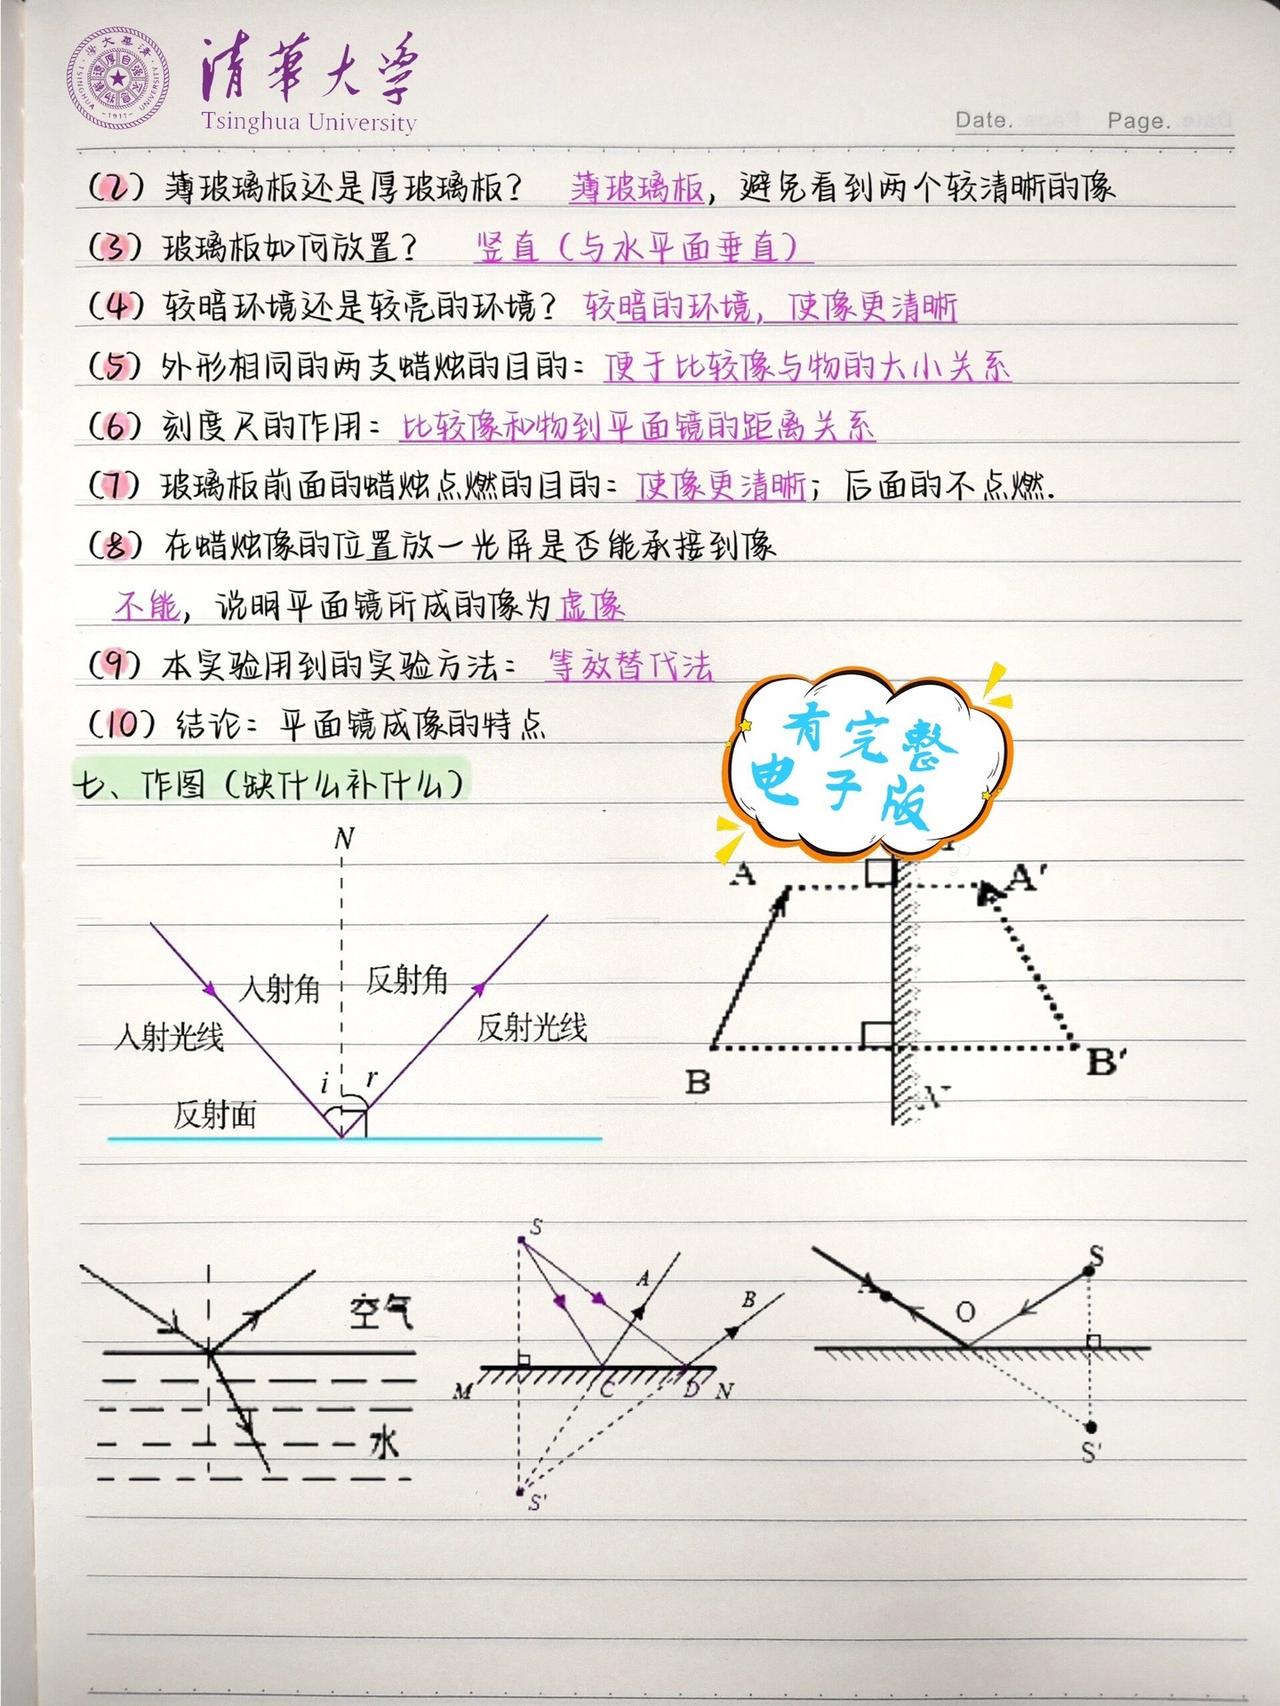 清華大学
Tsinghua University
Date. Page.
(2) 薄玻璃板还是厚玻璃板？ 薄玻璃板，避免看到两个较清晰的像
(3) 玻璃板如何放置？ 竖直（与水平面垂直）
(4) 较暗环境还是较亮的环境？ 较暗的环境，使像更清晰
(5) 外形相同的两支蜡烛的目的：便于比较像与物的大小关系
(6) 刻度尺的作用：比较像和物到平面镜的距离关系
(7) 玻璃板前面的蜡烛点燃的目的：使像更清晰；后面的不点燃.
(8) 在蜡烛像的位置放一光屏是否能承接到像
不能，说明平面镜所成的像为虚像
(9) 本实验用到的实验方法：等效替代法
(10) 结论：平面镜成像的特点
有完整
电子版
七、作图（缺什么补什么）
N
入射角 反射角
入射光线 反射光线
i r
反射面
A A'
B B'
N
空气
水
S
A B
M C D N
S'
A O S
S'